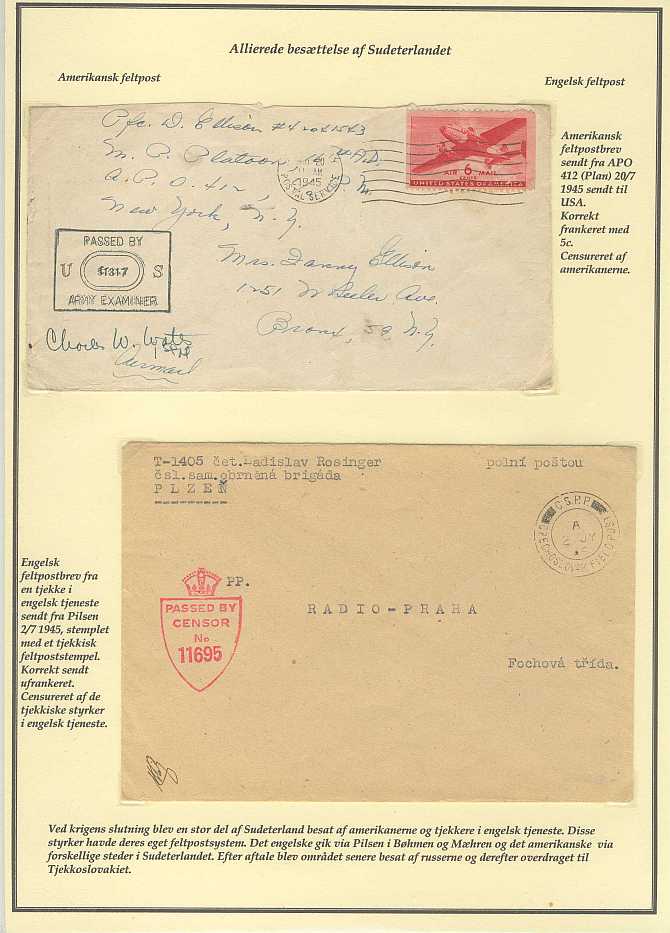 Allierede besættelse af Sudeterlandet
Amerikansk feltpost
Engelsk feltpost
Pfc. D. Ellison
M. P. Platoon
A. P. O. 412
New York, N. Y.
1945
POSTAL SERVICE
AIR 6 MAIL
CENTS
UNITED STATES OF AMERICA
PASSED BY
U S
ARMY EXAMINER
Mrs. Fanny Ellison
1251 Wheeler Ave.
Bronx, 59 N.Y.
Charles W. Watts
Airmail
Amerikansk
feltpostbrev
sendt fra APO
412 (Plan) 20/7
1945 sendt til
USA.
Korrekt
frankeret med
5c.
Censureret af
amerikanerne.
T-1405 čet.Ladislav Rosinger
polní poštou
čsl.sam.obrněná brigáda
P L Z E Ň
C.S.P.P.
A
2 JY
CZECHOSLOVAK FIELD POST
PP.
PASSED BY
CENSOR
No
11695
R A D I O - P R A H A
Fochová třída.
Engelsk
feltpostbrev fra
en tjekke i
engelsk tjeneste
sendt fra Pilsen
2/7 1945, stemplet
med et tjekkisk
feltpoststempel.
Korrekt sendt
ufrankeret.
Censureret af de
tjekkiske styrker
i engelsk tjeneste.
Ved krigens slutning blev en stor del af Sudeterland besat af amerikanerne og tjekkere i engelsk tjeneste. Disse
styrker havde deres eget feltpostsystem. Det engelske gik via Pilsen i Bøhmen og Mæhren og det amerikanske via
forskellige steder i Sudeterlandet. Efter aftale blev området senere besat af russerne og derefter overdraget til
Tjekkoslovakiet.